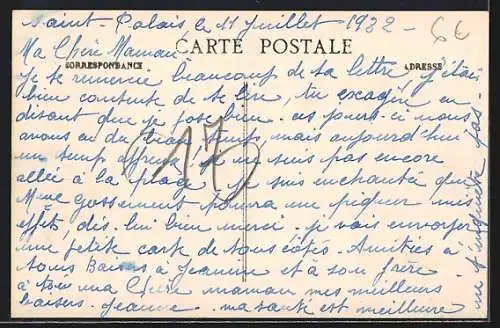 Saint-Palais, le 11 juillet 1932 -
6€
Ma Chère Maman
CARTE POSTALE
CORRESPONDANCE
ADRESSE
je te remercie beaucoup de ta lettre, j'étais
bien contente de te lire, tu exagères en
disant que je pose bien. ces jours-ci nous
avons eu du beau temps, mais aujourd'hui
un temps affreux, je ne suis pas encore
allée à la plage, je suis enchantée que
Mme pourra me piquer mes
effets, dis-lui bien merci. je vais envoyer
une petite carte de tous côtés. Amitiés à
tous Baisers à Jeanne et à son frère
à toi ma Chère maman mes meilleurs
baisers. Jeanne. ma santé est meilleure
ne t'inquiète pas -
17